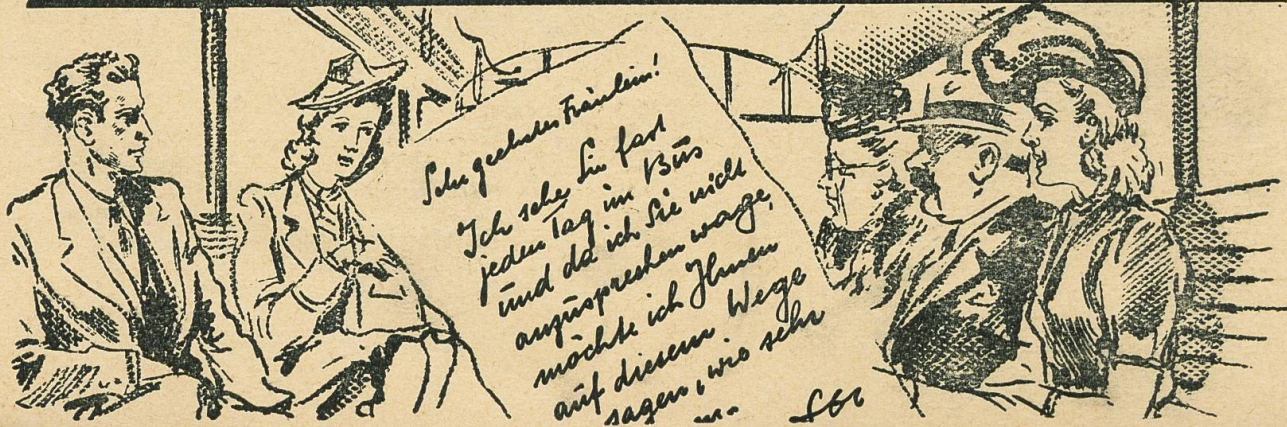 Sehr geehrtes Fräulein!
Ich sehe Sie fast
jeden Tag im Bus
und da ich Sie nicht
anzusprechen wage,
möchte ich Ihnen
auf diesem Wege
sagen, wie sehr
...